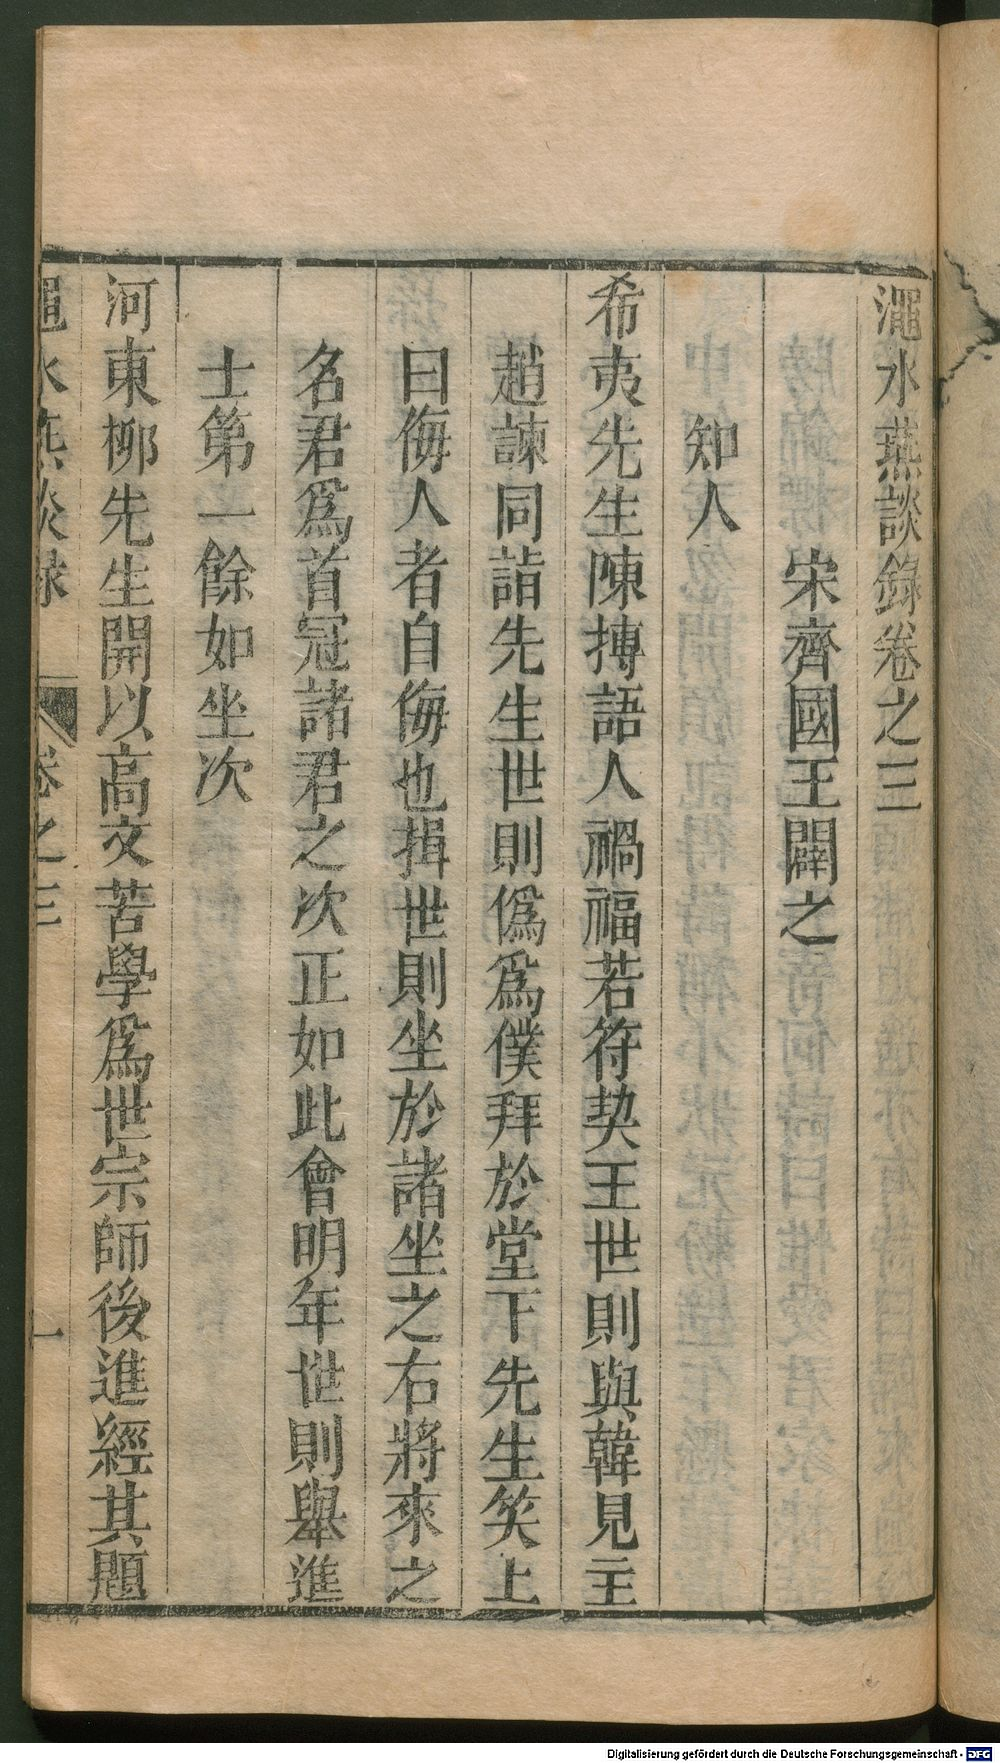 澠水燕談錄卷之三
宋齊國王闢之
知人
希夷先生陳摶語人禍福若符契王世則與韓見主
趙諫同詣先生世則僞爲僕拜於堂下先生笑上
曰侮人者自侮也揖世則坐於諸坐之右將來之
名君爲首冠諸君之次正如此會明年世則舉進
士第一餘如坐次
河東柳先生開以高文苦學爲世宗師後進經其題
澠水燕談錄 卷之三 一
Digitalisierung gefördert durch die Deutsche Forschungsgemeinschaft - DFG